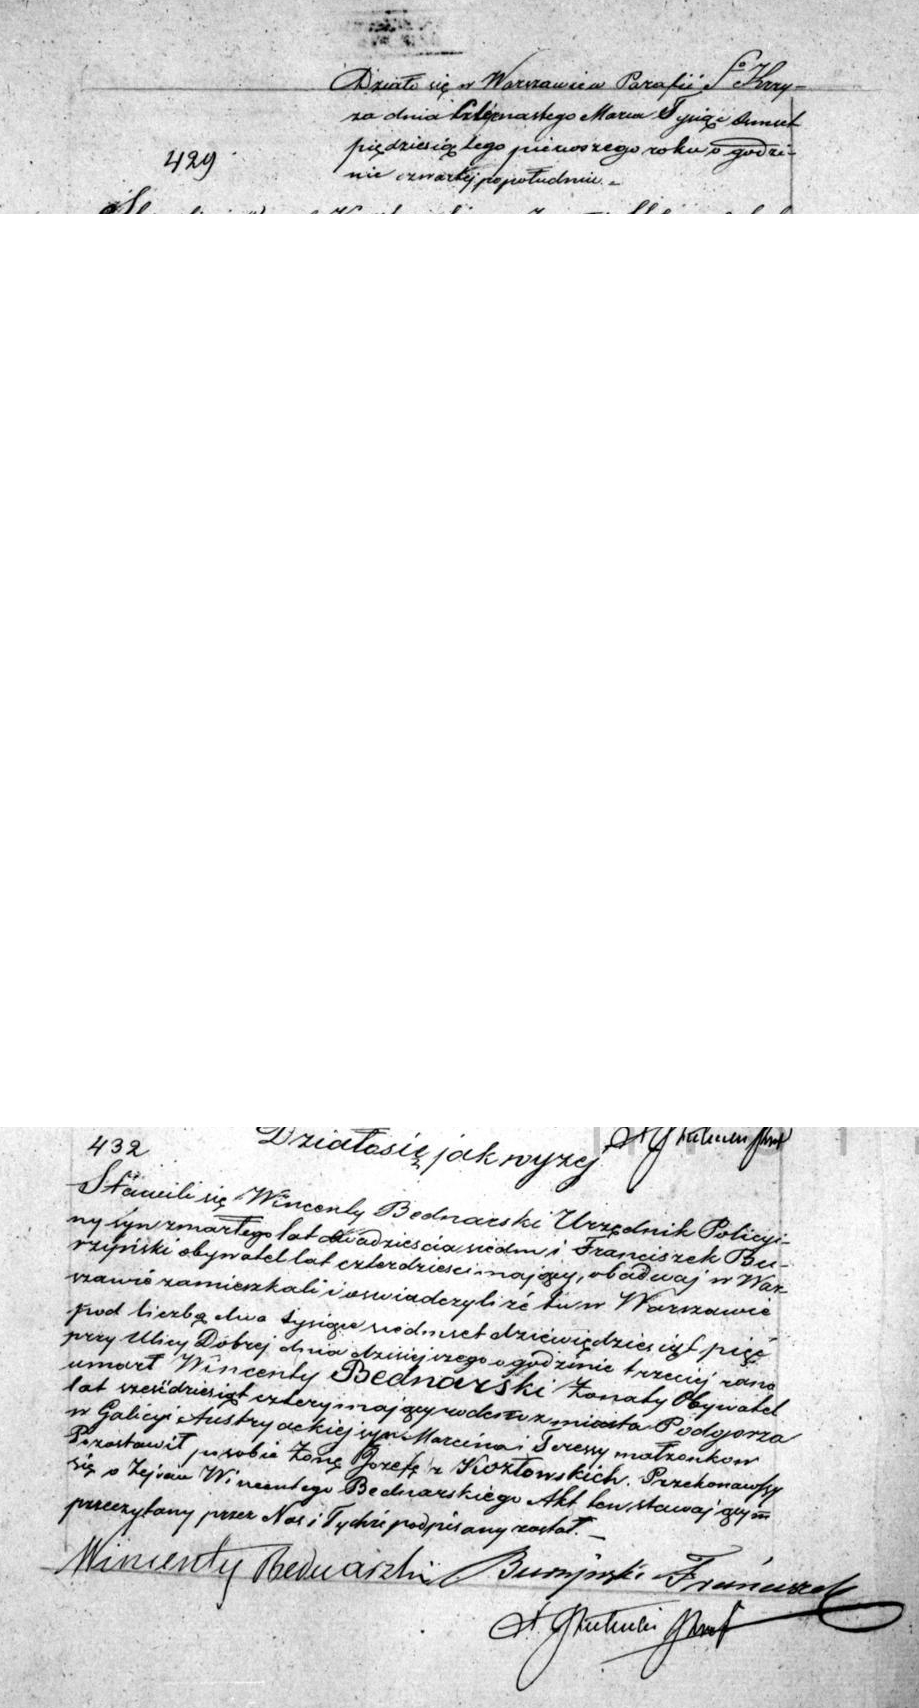 Działo się w Warszawie w Parafii Sgo Krzy-
ża dnia Czternastego Marca Tysiąc Ośmset
pięćdziesiątego pierwszego roku o godzi-
nie czwartej popołudniu.
429
432
Działo się jak wyżej
Stawili się Wincenty Bednarski Urzędnik Policyj-
ny syn zmarłego lat dwadzieścia siedm i Franciszek Bu-
rzyński obywatel lat czterdzieści mający, obadwaj w War-
szawie zamieszkali i oswiadczyli że tu w Warszawie
pod liczbą dwa tysiące siedmset dziewięćdziesiąt pięć
przy Ulicy Dobrej dnia dzisiejszego o godzinie trzeciej rano
umarł Wincenty Bednarski Żonaty Obywatel
lat sześćdziesiąt cztery mający rodem z miasta Podgorza
w Galicyi Austryackiej syn Marcina i Teressy małżonkow
Pozostawił po sobie Żonę Jozefę z Kozłowskich. Przekonawszy
się o Zejściu Wincentego Bednarskiego Akt ten stawającym
przeczytany przez Nas i Tychże podpisany został.
Wincenty Bednarski Burzyński Franciszek